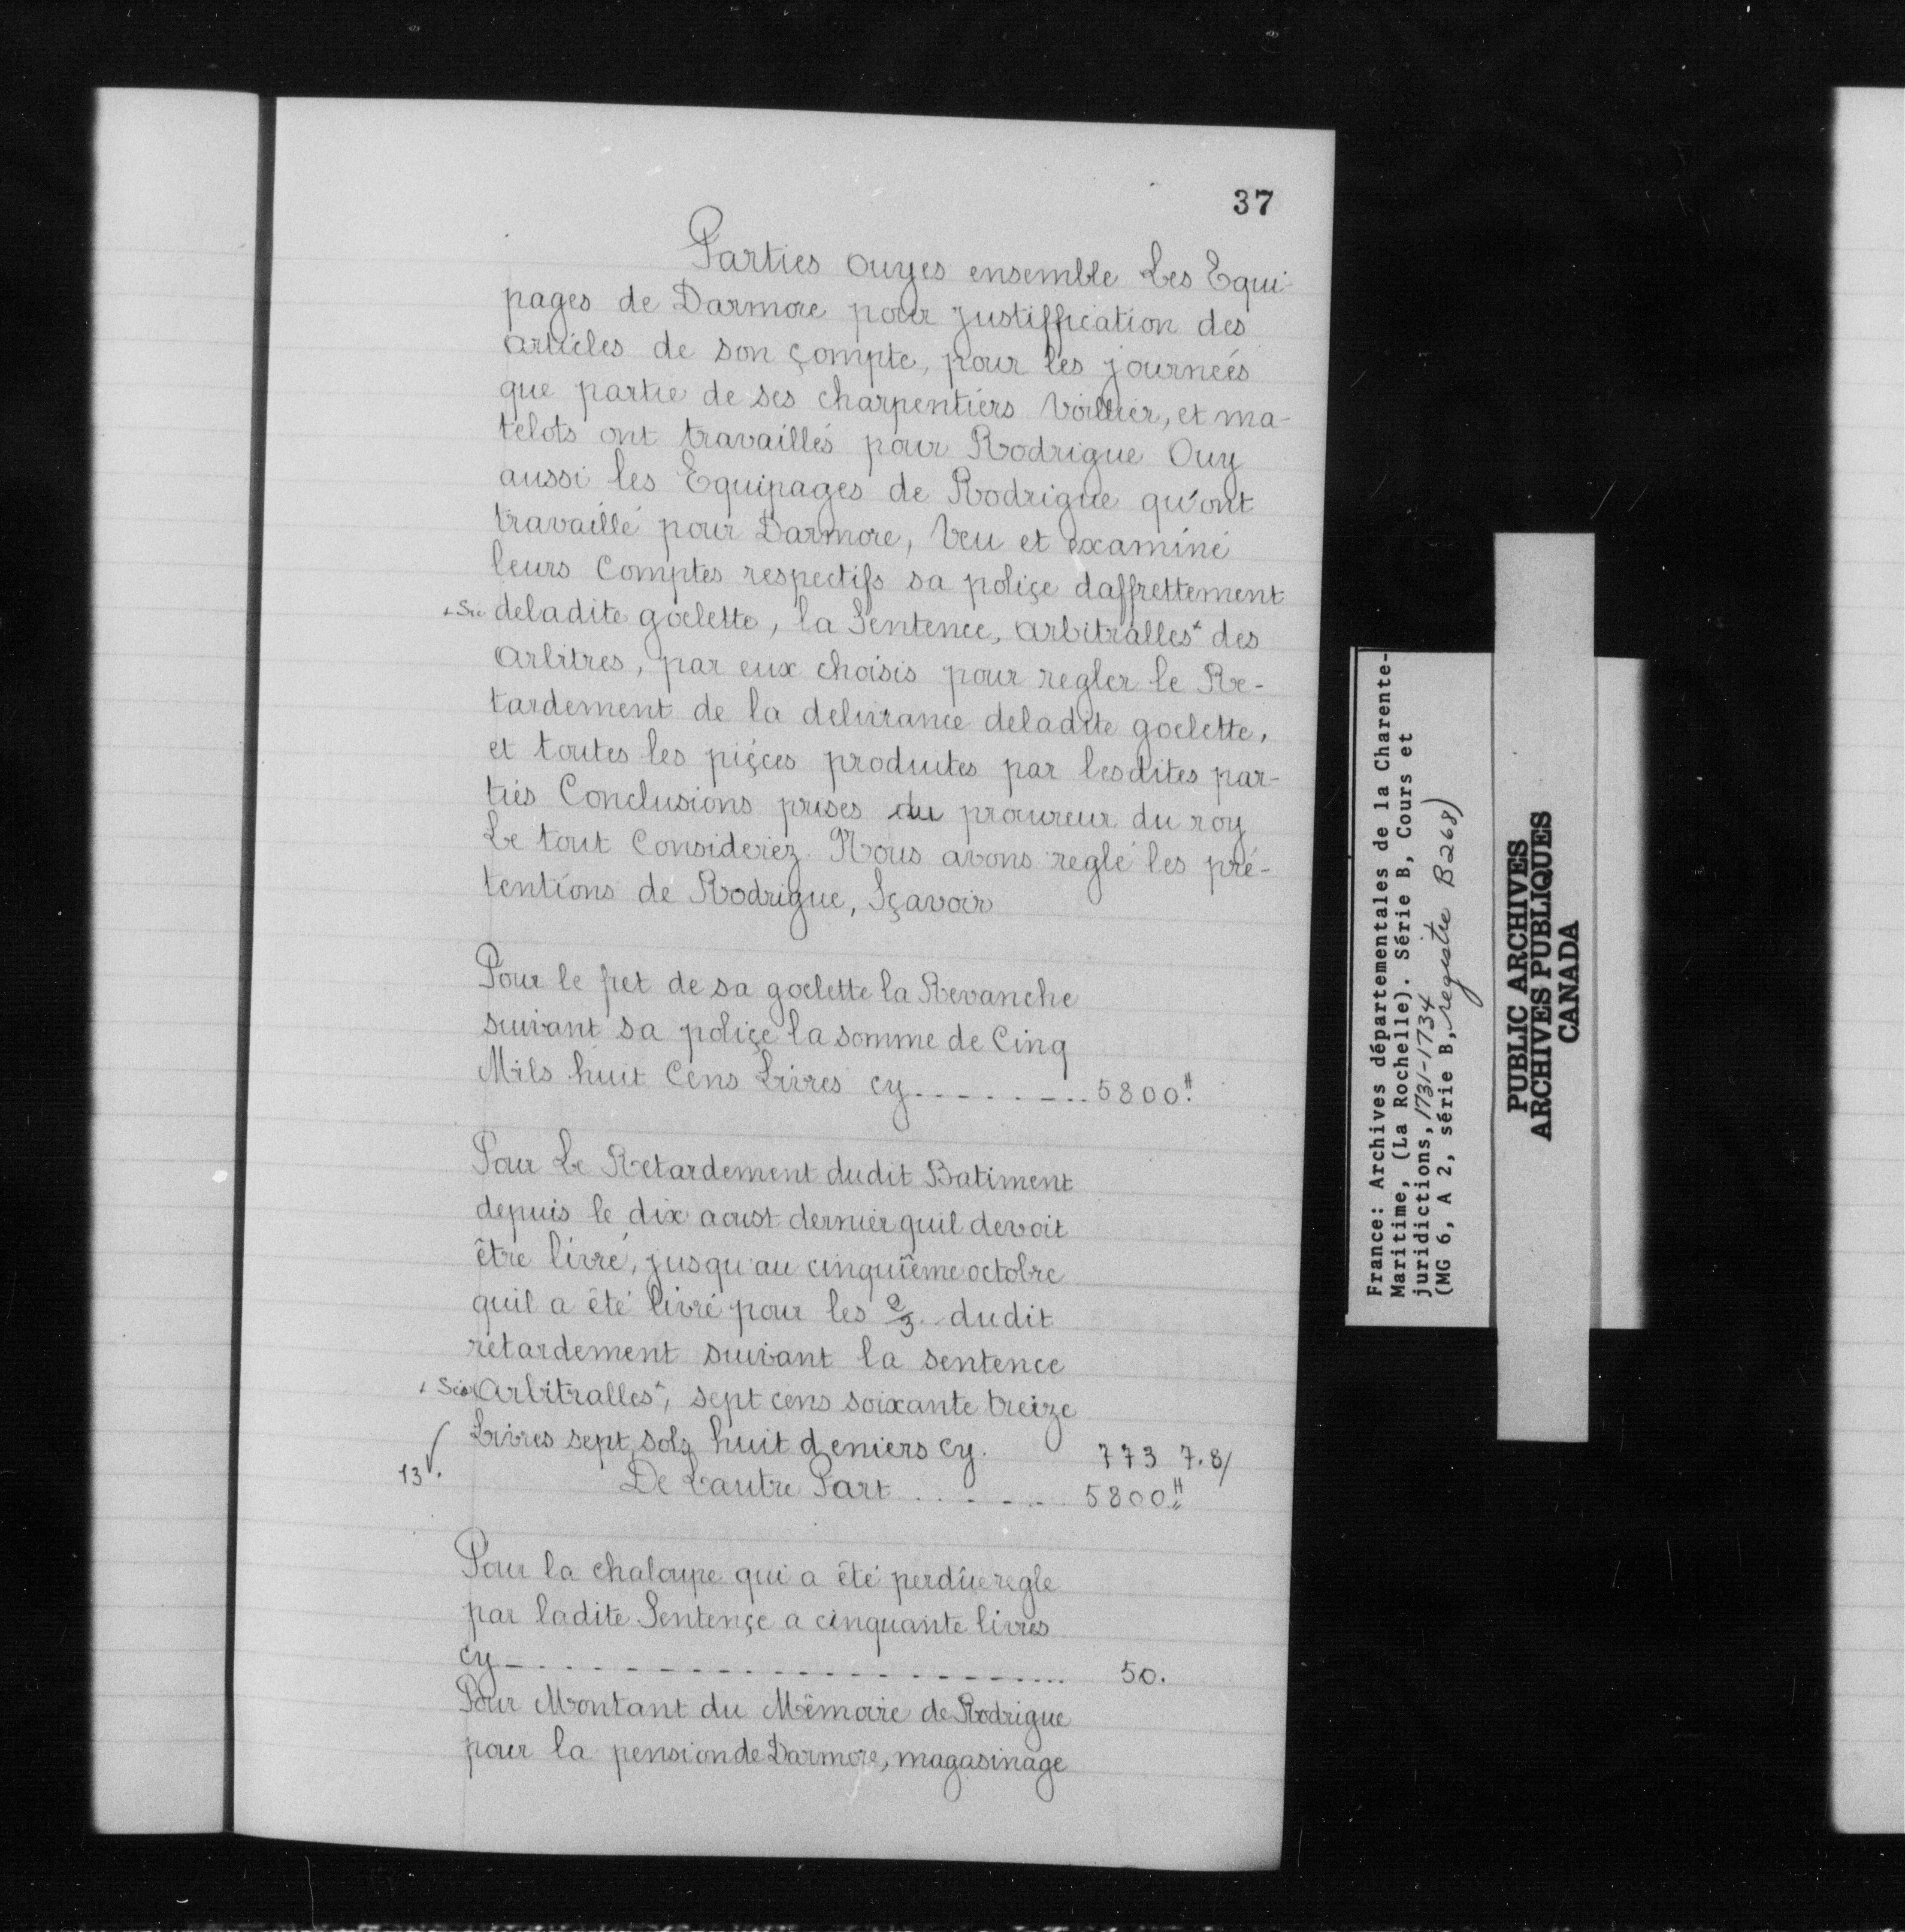 37
Parties ouyes ensemble Les Equi-
pages de Darmore pour justiffication des
articles de son çompte, pour les journeés
que partie de ses charpentiers Voillier, et ma-
telots ont travaillés pour Rodrigue Ouy
aussi les Equipages de Rodrigue qu'ont
travaillé pour Darmore, Veu et examiné
leurs Comptes respectifs sa poliçe daffrettement
+ Sic deladite goelette, la Sentence, arbitralles+ des
arbitres, par eux choisis pour regler le Re-
tardement de la delivrance deladite goelette,
et toutes les pièçes produites par lesdites par-
ties Conclusions prises du procureur du roy
Le tout Considerez. Nous avons reglé les pré-
tentions de Rodrigue, Sçavoir
Pour le fret de sa goelette la Revanche
suivant sa poliçe la somme de Cinq
Mils huit Cens Livres cy......... 5800.#
Pour Le Retardement dudit Batiment
depuis le dix aoust dernier quil devoit
être livré, jusqu'au cinquîeme octobre
quil a été livré pour les 2/3 dudit
retardement suivant la sentence
+ Sic Arbitralles+, sept cens soixante treize
Livres sept sols huit deniers cy. 773 7.8/
13. De Lautre Part ....... 5800.#
Pour la chaloupe qui a été perdûe regle
par ladite Sentençe a cinquante livres
cy-........................ 50.
Pour Montant du Mémoire de Rodrigue
pour la pension de Darmore, magasinage
France: Archives départementales de la Charente-
Maritime, (La Rochelle). Série B, Cours et
juridictions, 1731-1734
(MG 6, A 2, série B, registre B268)
PUBLIC ARCHIVES
ARCHIVES PUBLIQUES
CANADA